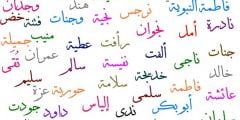 فاطمة النبوية هند وجدان
نادرة أمل نجوان نرجس نجية وجنات
جنات ناجى ألفت رأفت عطية منيب جميلة
عائشة خالد نفيسة سالم عمران تقى
فاطمة خديجة سلامة حورية عزة سليم
أبو بكر سلمى ندى إلياس داود جودت